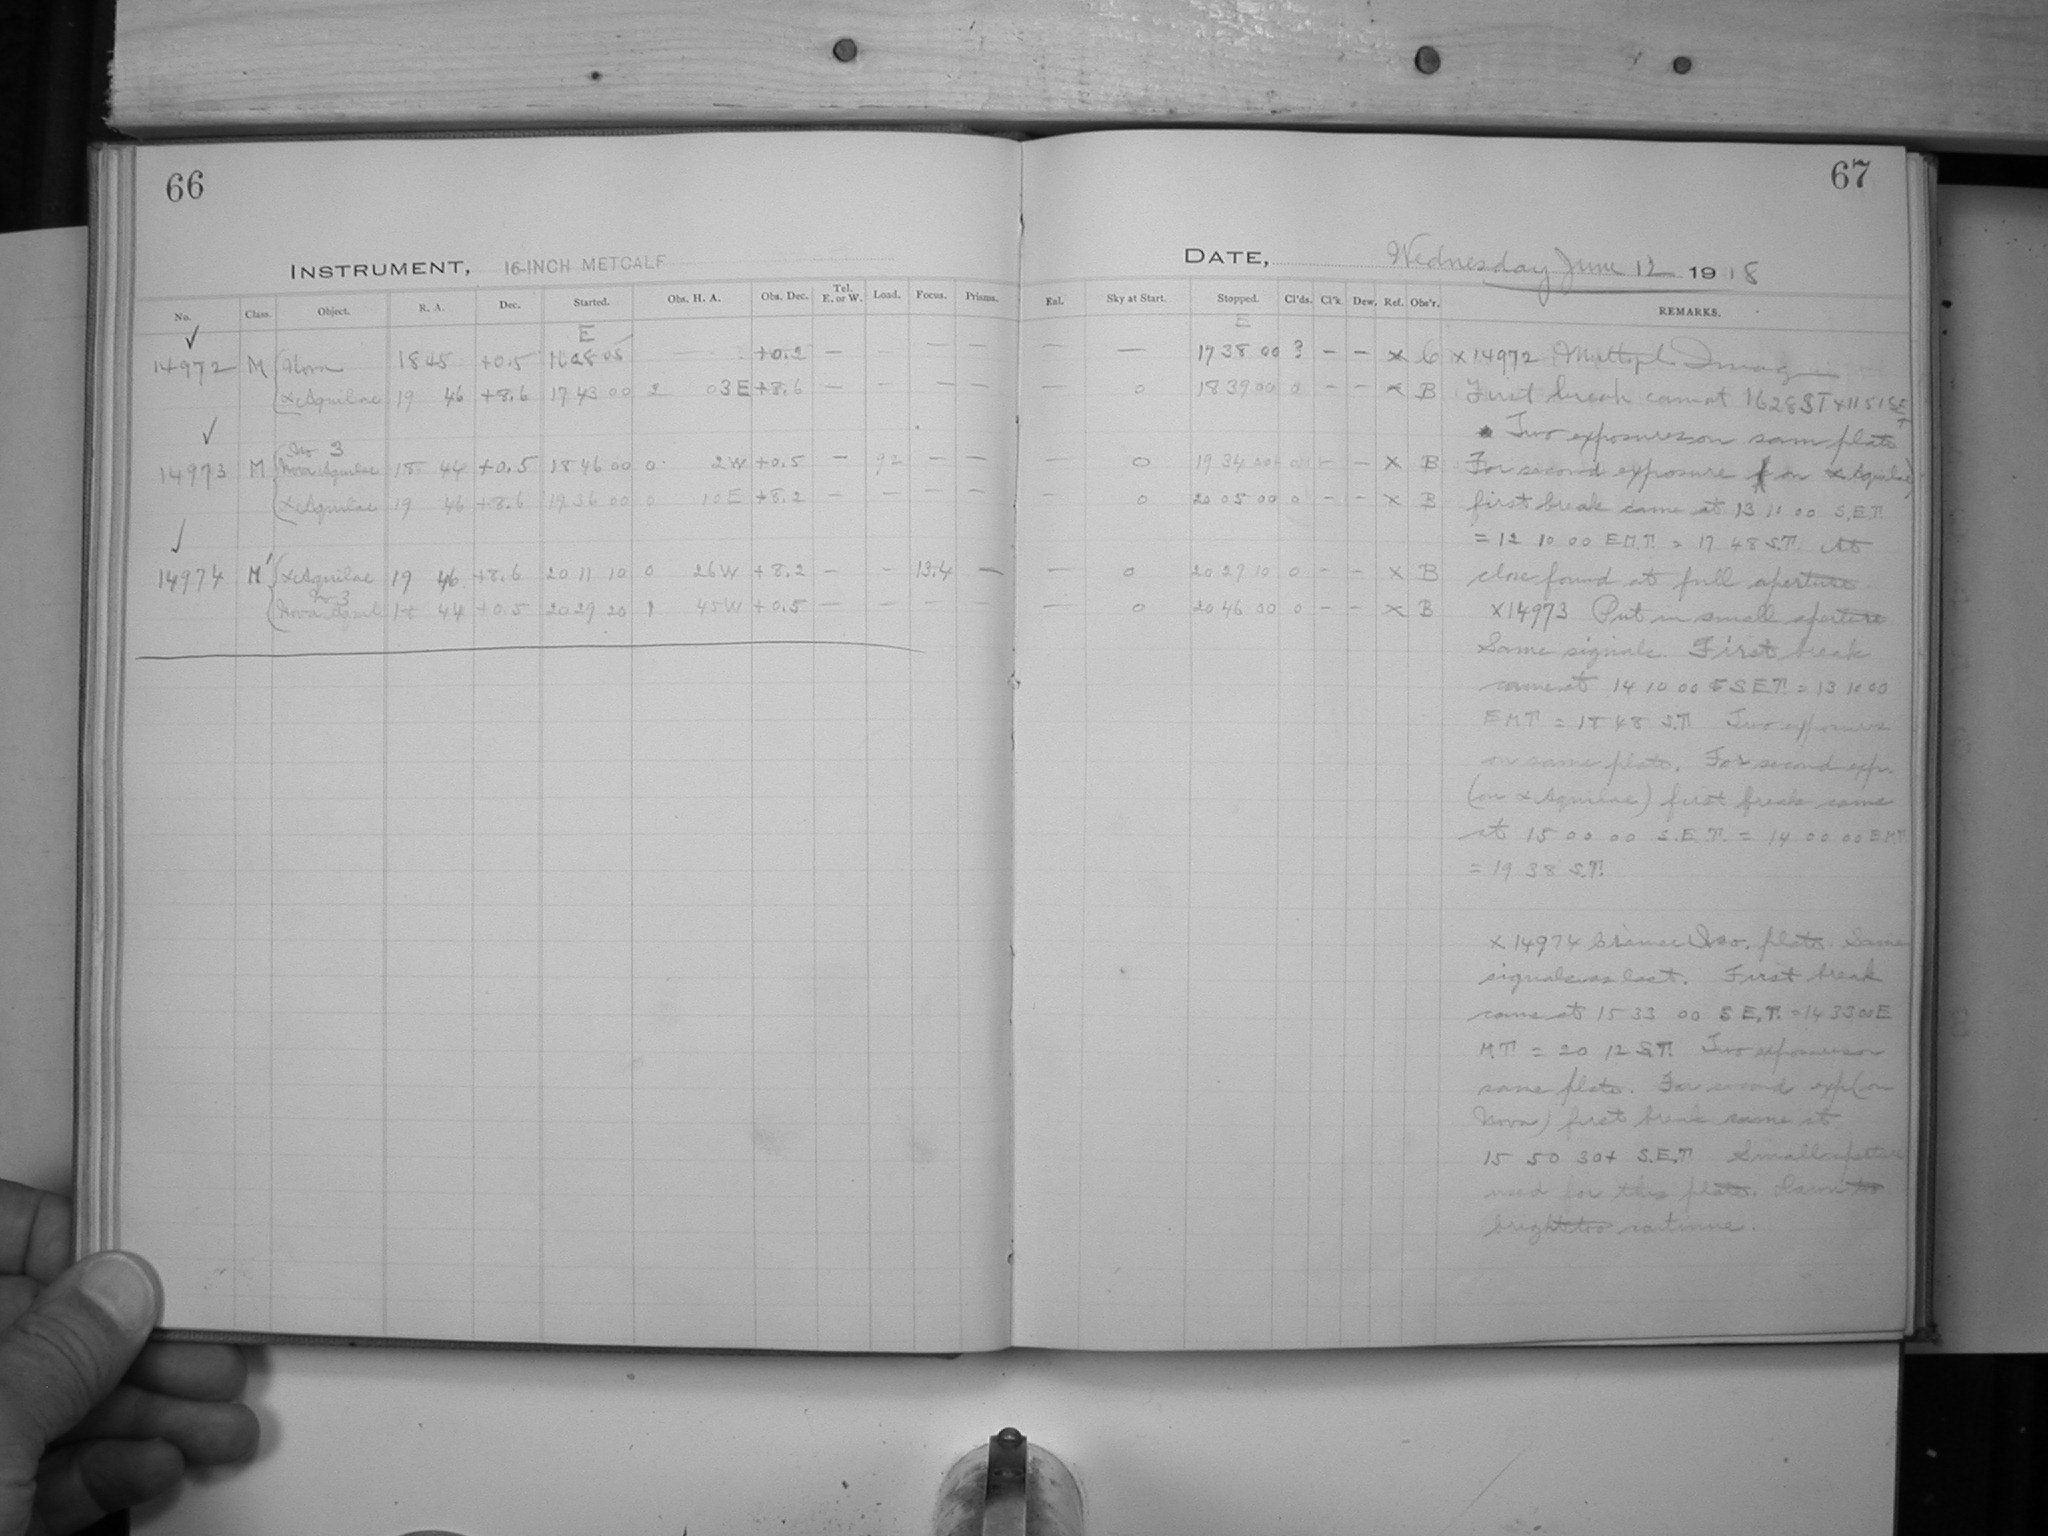 66
67
INSTRUMENT, 16-INCH METCALF
DATE, Wednesday June 12 1918
No. Class. Object. R. A. Dec. Started. Obs. H. A. Obs. Dec. Tel. E. or W. Load. Focus. Prisms. Enl. Sky at Start. Stopped. Cl'ds. Cl'k. Dew. Ref. Obs'r. REMARKS.
E E
14972 M Nova 18 45 +0.5 16 28 05 — +0.2 — — — — — — 17 38 00 ? — — x C
α Aquilae 19 46 +8.6 17 43 00 2 03E +8.6 — — — — — 0 18 39 00 0 — — x B
No 3
14973 M Nova Aquilae 18 44 +0.5 18 46 00 0 2W +0.5 — 92 — — — 0 19 34 00 0 — — x B
α Aquilae 19 46 +8.6 19 36 00 0 10E +8.2 — — — — — 0 20 05 00 0 — — x B
14974 M' α Aquilae 19 46 +8.6 20 11 10 0 26W +8.2 — — 13.4 — — 0 20 29 10 0 — — x B
No 3
Nova Aquil 18 44 +0.5 20 29 20 1 45W +0.5 — — — — — 0 20 46 00 0 — — x B
x 14972 Multiple Image
First break came at 16 28 ST x 11 51 SET
Two exposures on same plate
For second exposure (on α Aquilae)
first break came at 13 10 00 S.E.T.
= 12 10 00 E.M.T. = 17 48 S.T. At
close found at full aperture
x14973 Put in small aperture
Same signals. First break
came at 14 10 00 S.E.T. = 13 10 00
EMT = 18 48 S.T. Two exposures
on same plate. For second exp.
(on α Aquilae) first break came
at 15 00 00 S.E.T. = 14 00 00 EMT
= 19 38 S.T.
x 14974 Cramer Iso. plate. Same
signals as last. First break
came at 15 33 00 S.E.T. = 14 33 00 E
M.T. = 20 12 S.T. Two exposures on
same plate. For second exp. (on
Nova) first break came at
15 50 30+ S.E.T. Small aperture
used for this plate. Dawn too
bright to continue.